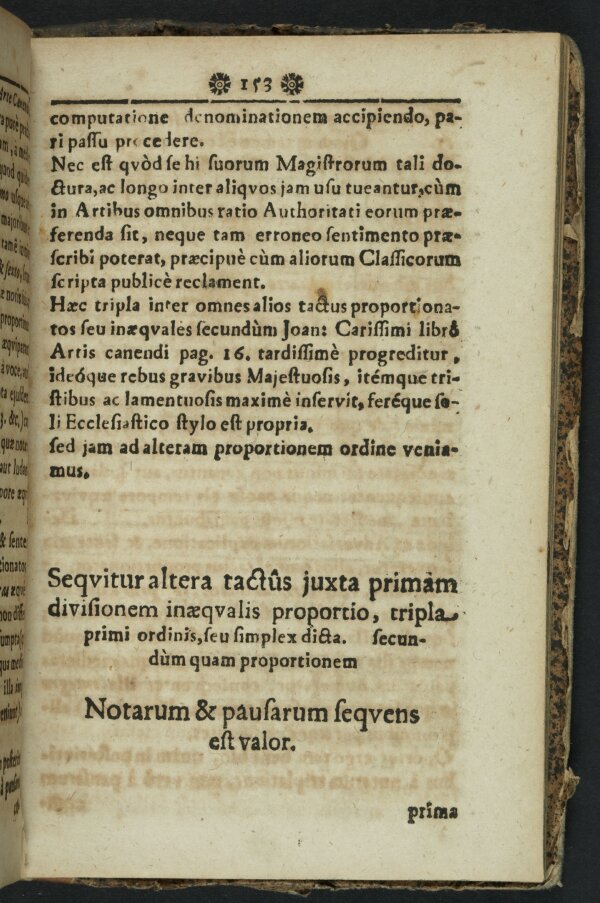 153
computatione denominationem accipiendo, pa-
ri passu procedere.
Nec est qvòd se hi suorum Magistrorum tali do-
ctura, ac longo inter aliqvos jam usu tueantur, cùm
in Artibus omnibus ratio Authoritati eorum præ-
ferenda sit, neque tam erroneo sentimento præ-
scribi poterat, præcipuè cùm aliorum Classicorum
scripta publicè reclament.
Hæc tripla inter omnes alios tactus proportiona-
tos seu inæqvales secundùm Joan: Carissimi librô
Artis canendi pag. 16. tardissimè progreditur,
ideóque rebus gravibus Majestuosis, itémque tri-
stibus ac lamentuosis maximè inservit, feréque so-
li Ecclesiastico stylo est propria.
sed jam ad alteram proportionem ordine venia-
mus.
Seqvitur altera tactûs juxta primam
divisionem inæqvalis proportio, tripla
primi ordinis, seu simplex dicta. secun-
dùm quam proportionem
Notarum & pausarum seqvens
est valor.
prima